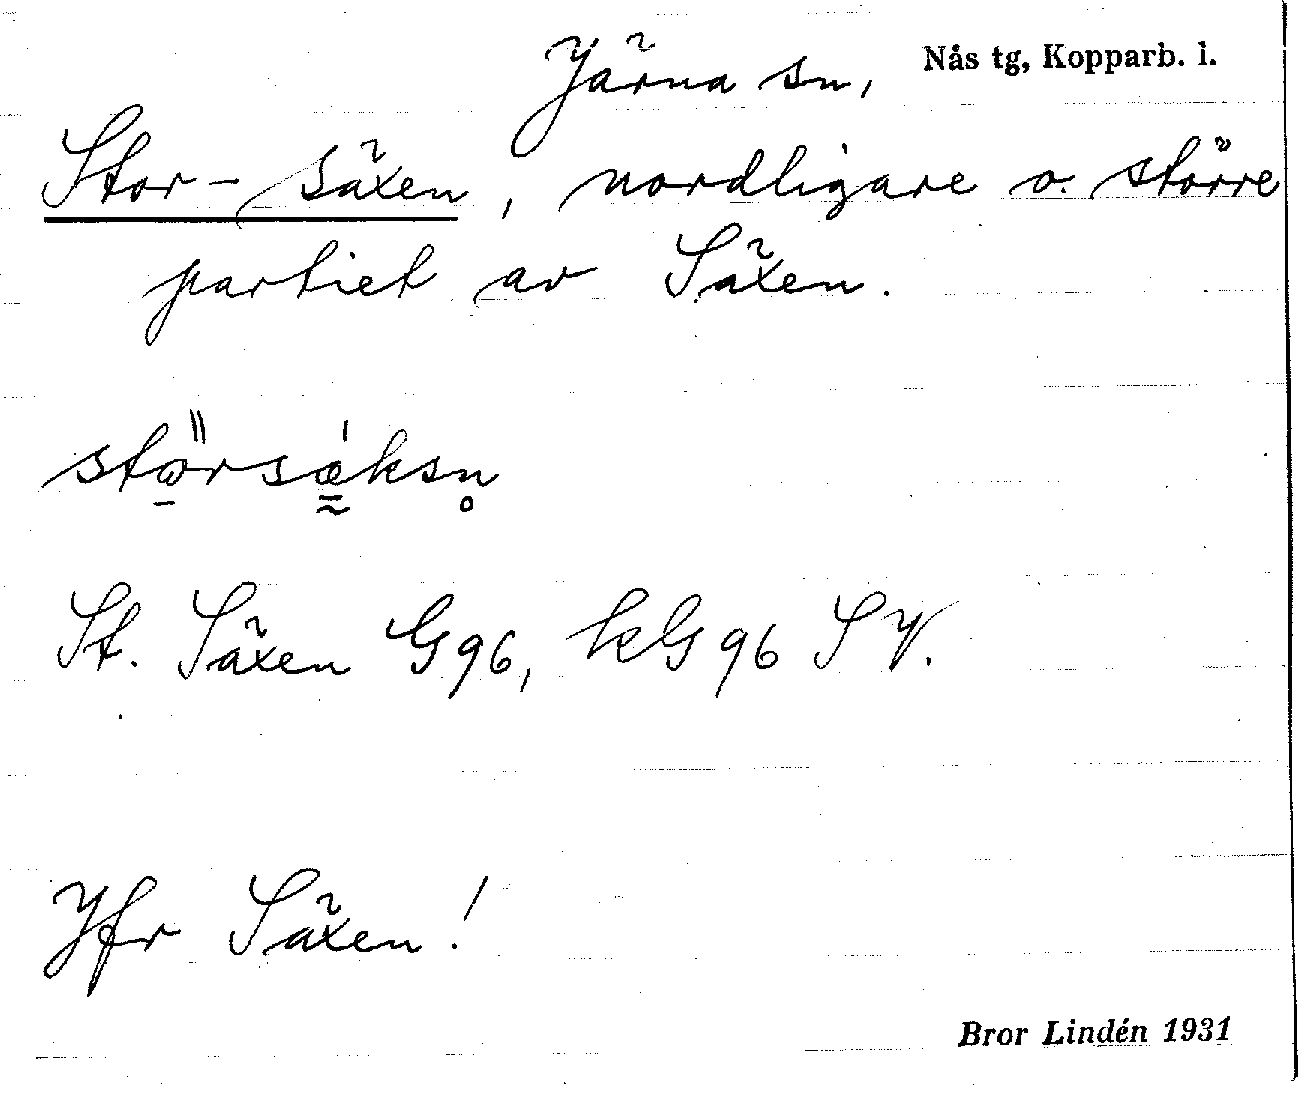 Järna sn, Nås tg, Kopparb. l.
Stor-säxen, nordligare o. större
partiet av Säxen.
St. Säxen G96, kG96 SV.
Jfr Säxen!
Bror Lindén 1931